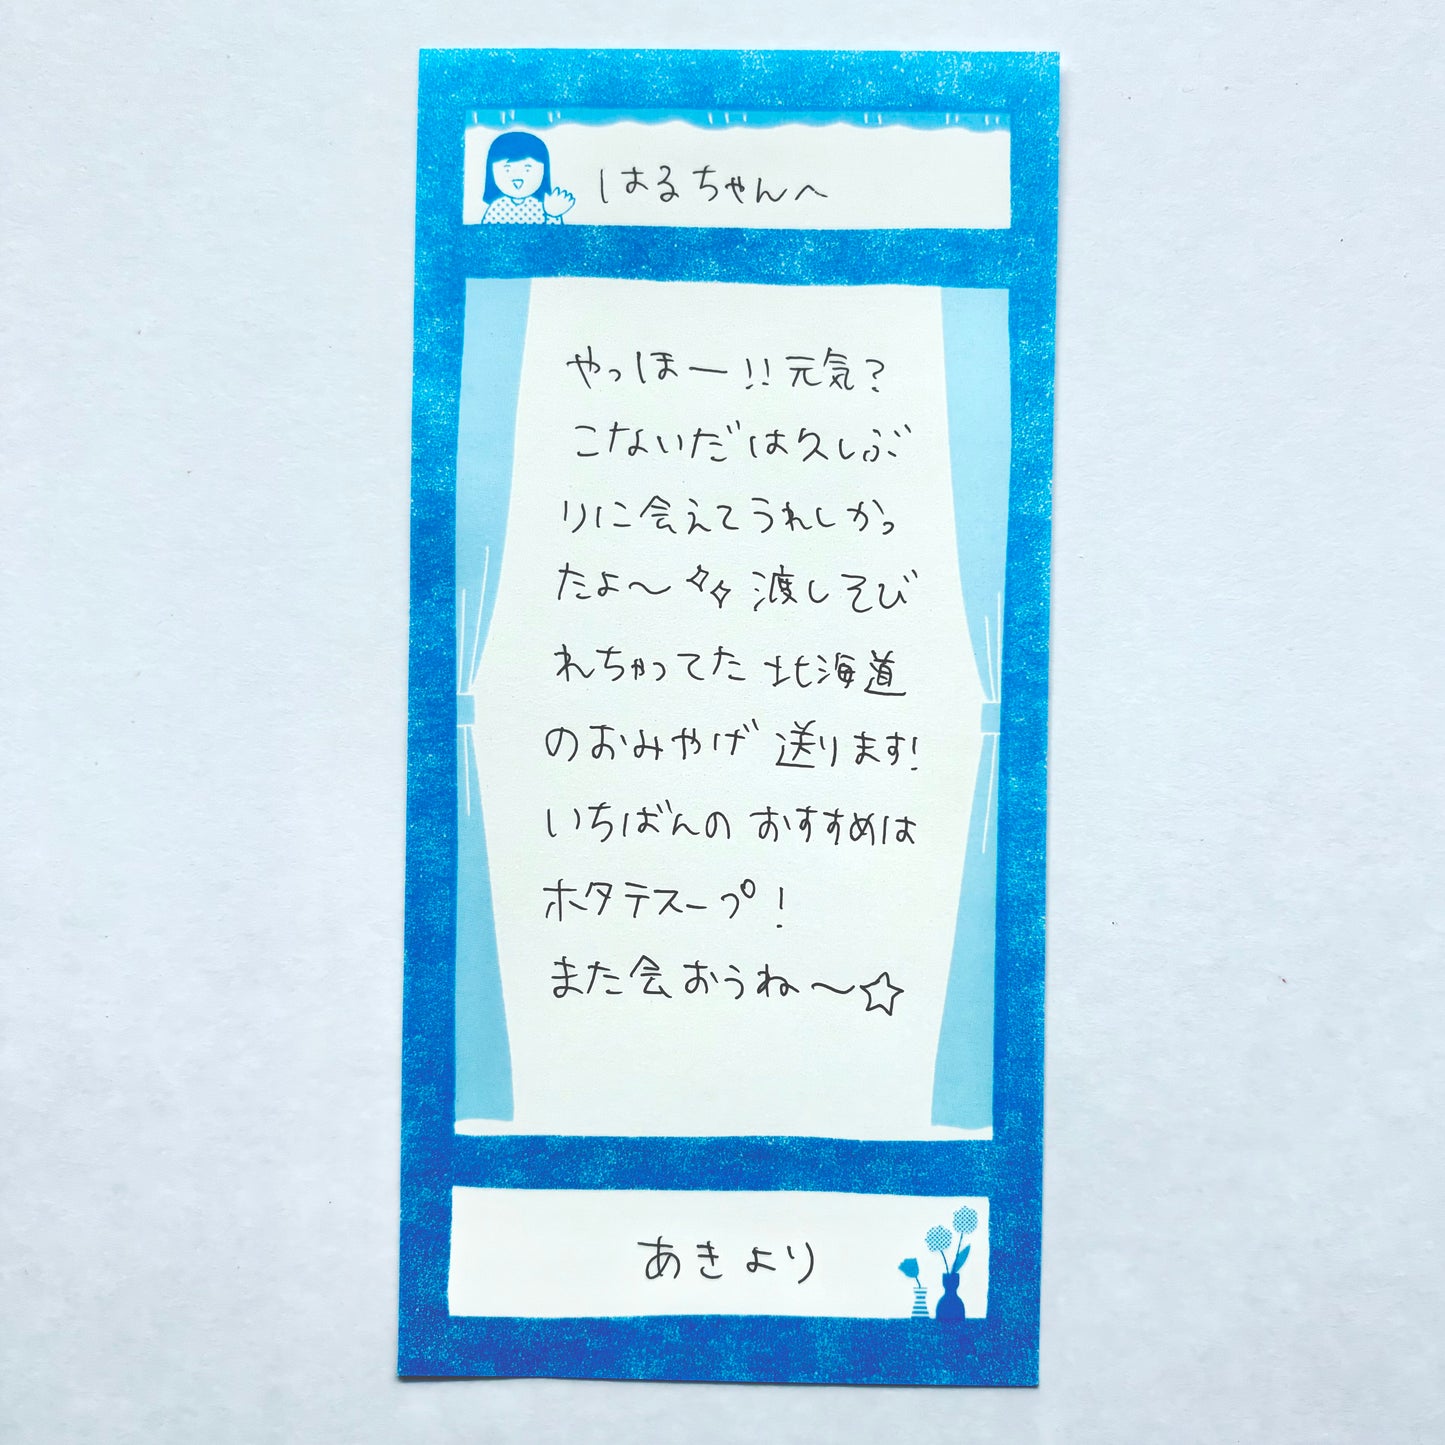 はるちゃんへ
やっほー!!元気?
こないだは久しぶ
りに会えてうれしかっ
たよ〜✧✧渡しそび
れちゃってた北海道
のおみやげ送ります!
いちばんのおすすめは
ホタテスープ!
また会おうね〜☆
あきより